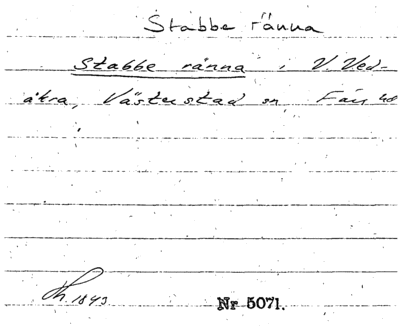 Stabbe ränna
Stabbe ränna i V. Ved-
åkra, Västerstad sn Färs hd
Th. 1843
Nr 5071.